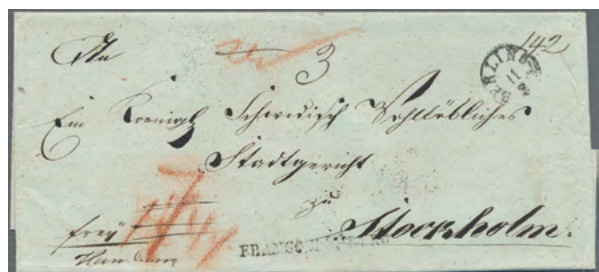 An
3
142
BERLIN
11
Ein Koenigl Schwedisch Wohllöbliches
Stadtgericht
zu
Stockholm.
frey
Hamburg
FRANCO